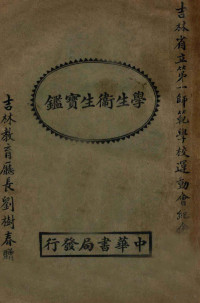 吉林省立第一師範學校運動會紀念
學生衞生寶鑑
吉林教育廳長劉樹春贈
中華書局發行